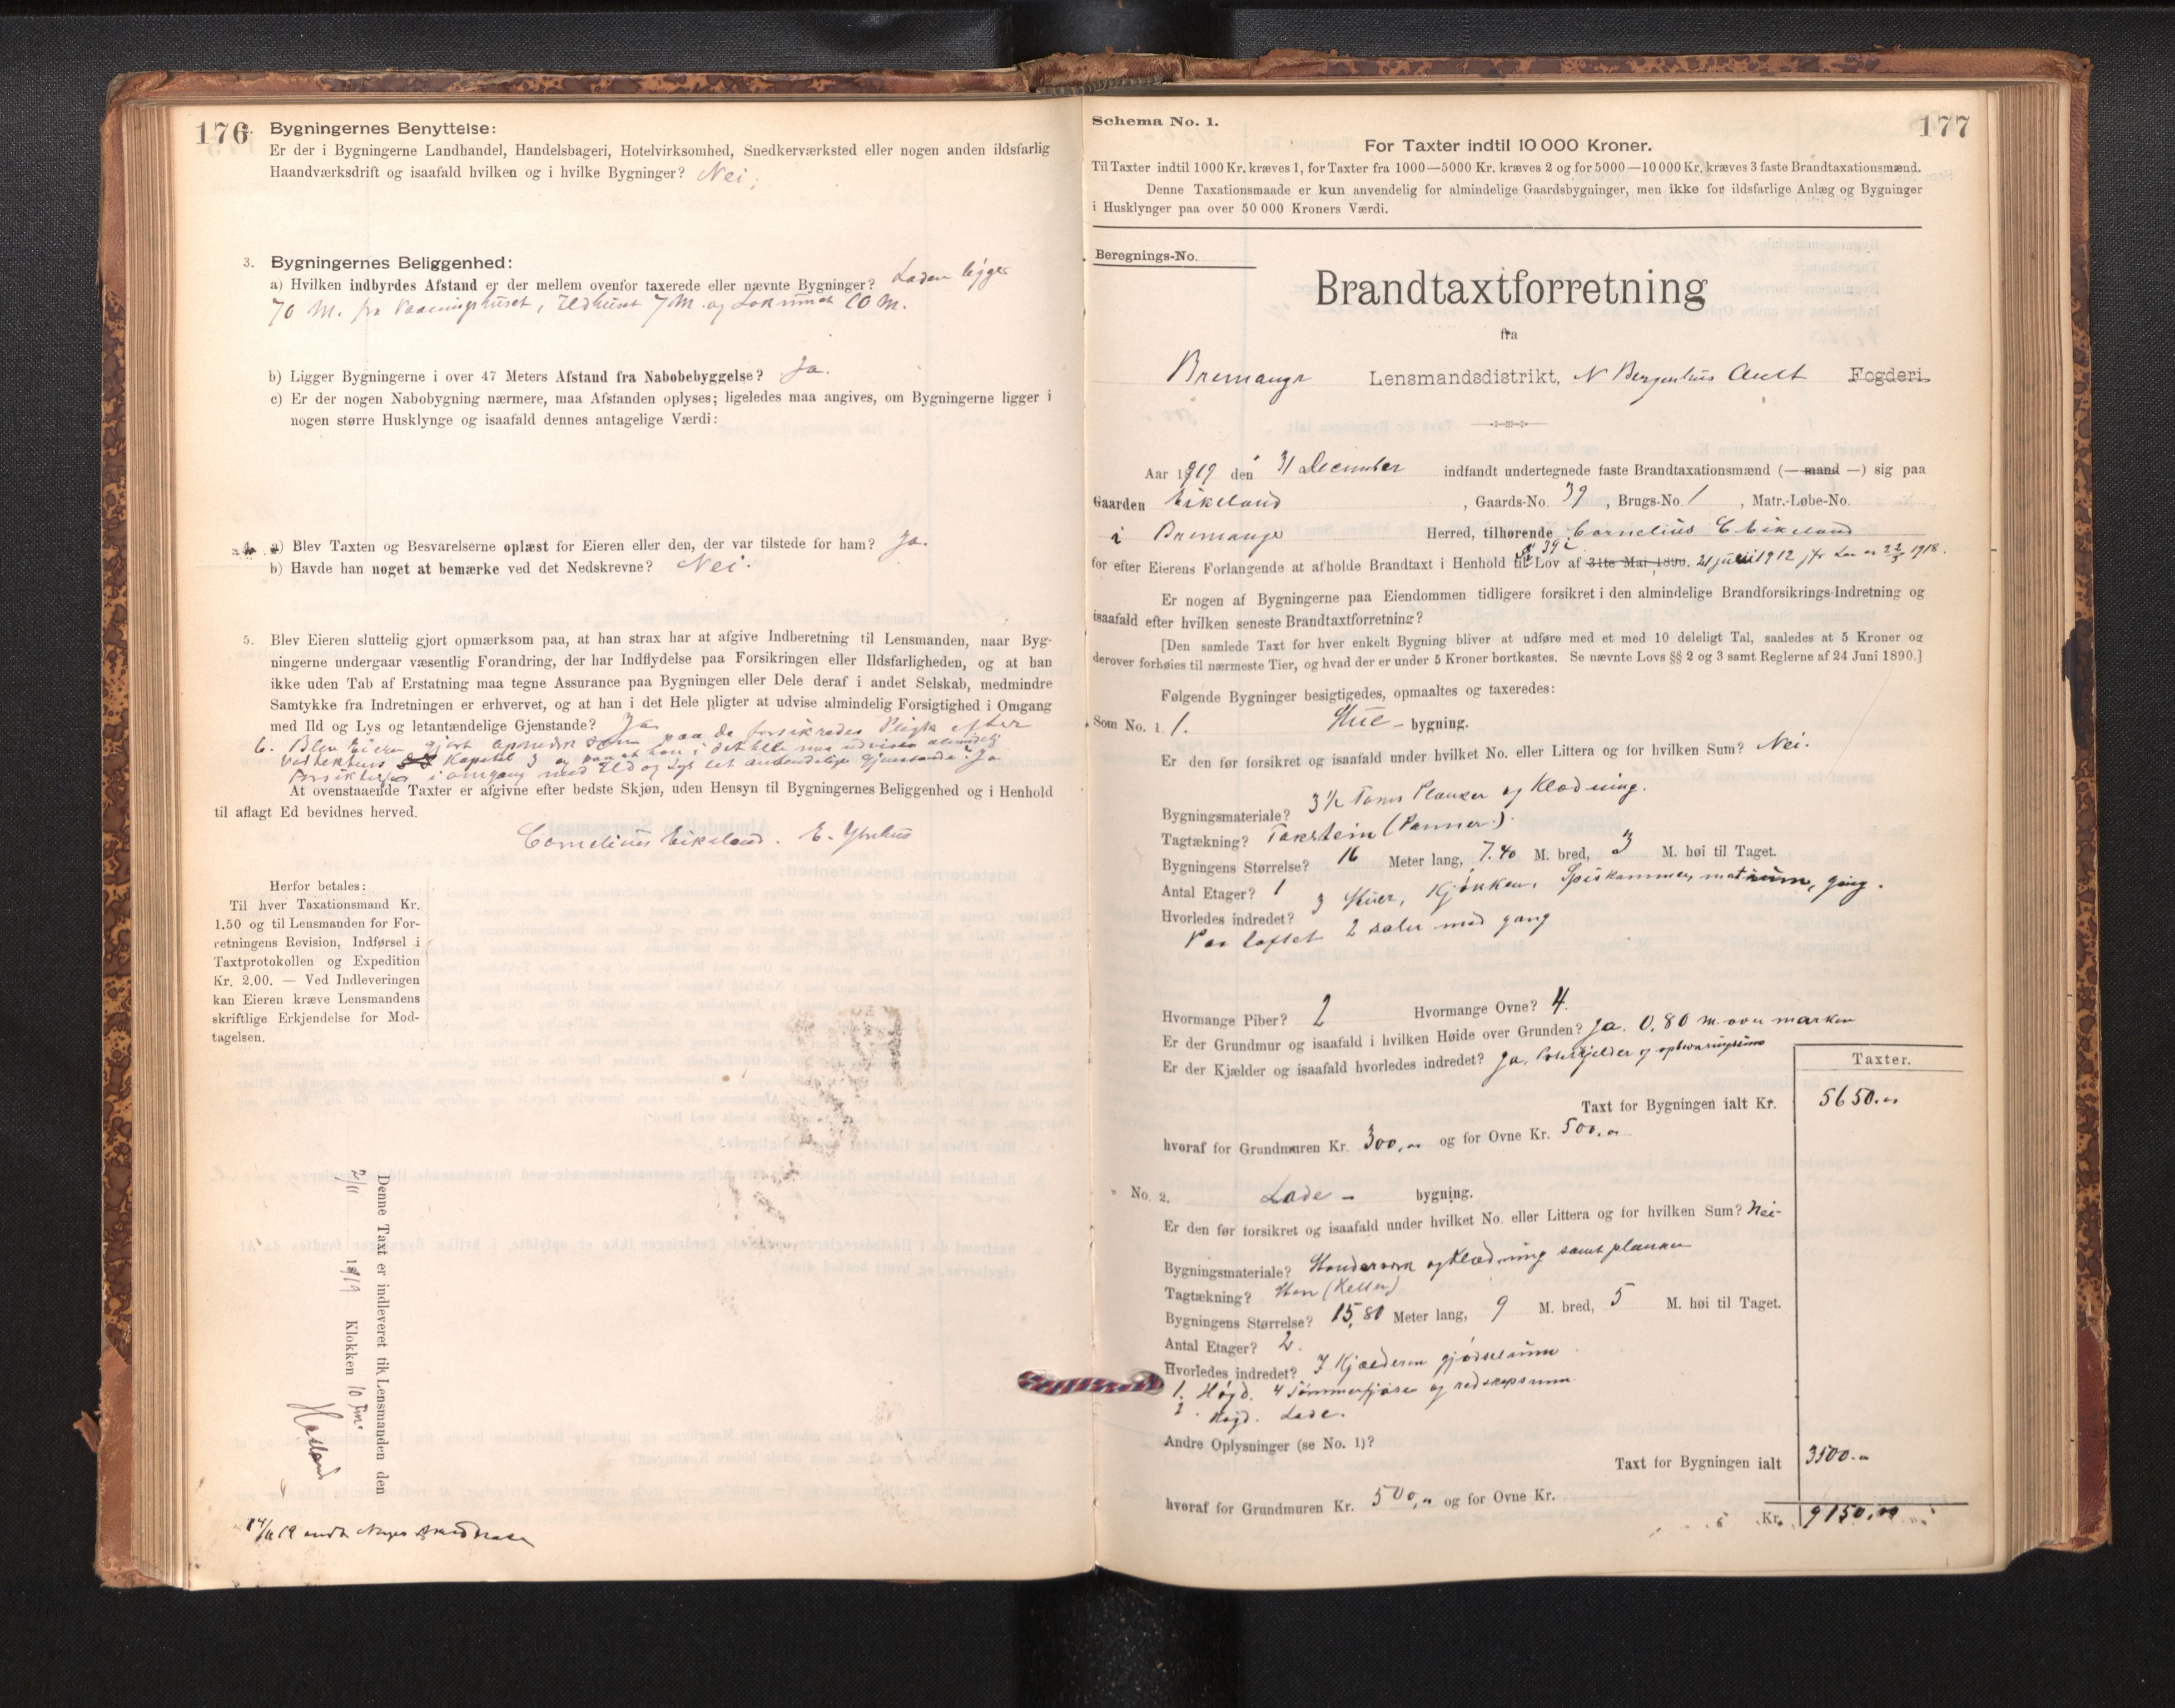 176
2. Bygningernes Benyttelse:
Er der i Bygningerne Landhandel, Handelsbageri, Hotelvirksomhed, Snedkerværksted eller nogen anden ildsfarlig
Haandværksdrift og isaafald hvilken og i hvilke Bygninger? Nei.
3. Bygningernes Beliggenhed:
a) Hvilken indbyrdes Afstand er der mellem ovenfor taxerede eller nævnte Bygninger? Laden ligger
70 M. fra Vaaningshuset, Ildhuset 7 M. og
b) Ligger Bygningerne i over 47 Meters Afstand fra Nabobebyggelse? Ja.
c) Er der nogen Nabobygning nærmere, maa Afstanden oplyses; ligeledes maa angives, om Bygningerne ligger i
nogen større Husklynge og isaafald dennes antagelige Værdi:
4. a) Blev Taxten og Besvarelserne oplæst for Eieren eller den, der var tilstede for ham? Ja.
b) Havde han noget at bemærke ved det Nedskrevne? Nei.
5. Blev Eieren sluttelig gjort opmærksom paa, at han strax har at afgive Indberetning til Lensmanden, naar Byg-
ningerne undergaar væsentlig Forandring, der har Indflydelse paa Forsikringen eller Ildsfarligheden, og at han
ikke uden Tab af Erstatning maa tegne Assurance paa Bygningen eller Dele deraf i andet Selskab, medmindre
Samtykke fra Indretningen er erhvervet, og at han i det Hele pligter at udvise almindelig Forsigtighed i Omgang
med Ild og Lys og letantændelige Gjenstande? Ja
6. Blev Eieren gjort opmerksom paa de forsikredes Pligter efter
Vedtekters Kapitel 3 og paa at han i det hele maa udvise almindelig
Forsiktighet i omgang med Ild og Lys let antendelige gjenstande? Ja
At ovenstaaende Taxter er afgivne efter bedste Skjøn, uden Hensyn til Bygningernes Beliggenhed og i Henhold
til aflagt Ed bevidnes herved.
Cornelius Eikeland. E.
Herfor betales:
Til hver Taxationsmand Kr.
1.50 og til Lensmanden for For-
retningens Revision, Indførsel i
Taxtprotokollen og Expedition
Kr. 2.00. — Ved Indleveringen
kan Eieren kræve Lensmandens
skriftlige Erkjendelse for Mod-
tagelsen.
Denne Taxt er indleveret til Lensmanden den
2/11 1919 Klokken 10 fm.
177
Schema No. 1.
For Taxter indtil 10 000 Kroner.
Til Taxter indtil 1000 Kr. kræves 1, for Taxter fra 1000—5000 Kr. kræves 2 og for 5000—10 000 Kr. kræves 3 faste Brandtaxationsmænd.
Denne Taxationsmaade er kun anvendelig for almindelige Gaardsbygninger, men ikke for ildsfarlige Anlæg og Bygninger
i Husklynger paa over 50 000 Kroners Værdi.
Beregnings-No.
Brandtaxtforretning
fra
Bremanger Lensmandsdistrikt, N Bergenhus Amt Fogderi.
Aar 1919 den 31 December indfandt undertegnede faste Brandtaxationsmænd (— mand —) sig paa
Gaarden Eikeland, Gaards-No. 39, Brugs-No. 1, Matr.-Løbe-No.
i Bremanger Herred, tilhørende Cornelius C. Eikeland
for efter Eierens Forlangende at afholde Brandtaxt i Henhold til § 39 i Lov af 31te Mai 1899. 21 juli 1912 jfr Lov av 22/3 1918.
Er nogen af Bygningerne paa Eiendommen tidligere forsikret i den almindelige Brandforsikrings-Indretning og
isaafald efter hvilken seneste Brandtaxtforretning?
[Den samlede Taxt for hver enkelt Bygning bliver at udføre med et med 10 deleligt Tal, saaledes at 5 Kroner og
derover forhøies til nærmeste Tier, og hvad der er under 5 Kroner bortkastes. Se nævnte Lovs §§ 2 og 3 samt Reglerne af 24 Juni 1890.]
Følgende Bygninger besigtigedes, opmaaltes og taxeredes:
Som No. 1. 1. Stue - bygning.
Er den før forsikret og isaafald under hvilket No. eller Littera og for hvilken Sum? Nei.
Bygningsmateriale? 3 ½ Toms Planker og Klædning.
Tagtækning? Takstein (Panner).
Bygningens Størrelse? 16 Meter lang, 7.40 M. bred, 3 M. høi til Taget.
Antal Etager? 1
Hvorledes indredet? 3 Stuer, Kjøkken, Spiskammer, matrum, gang.
Paa loftet 2 saler med gang
Hvormange Piber? 2 Hvormange Ovne? 4.
Er der Grundmur og isaafald i hvilken Høide over Grunden? Ja. 0,80 m. over marken
Er der Kjælder og isaafald hvorledes indredet? Ja, Potetkjelder og opbevaringsrum
Taxter.
Taxt for Bygningen ialt Kr. 5650.00
hvoraf for Grundmuren Kr. 300,00 og for Ovne Kr. 500,00
No. 2. Lade - bygning.
Er den før forsikret og isaafald under hvilket No. eller Littera og for hvilken Sum? Nei-
Bygningsmateriale? Stenderverk og Klædning samt planker
Tagtækning? Sten (Heller)
Bygningens Størrelse? 15,80 Meter lang, 9 M. bred, 5 M. høi til Taget.
Antal Etager? 2.
Hvorledes indredet? I Kjælderen gjødselrum.
1. Høgd. 4 Tømmerfjøse og redskapsrum.
2. Høgd. Lade.
Andre Oplysninger (se No. 1)?
Taxt for Bygningen ialt 3500.00
hvoraf for Grundmuren Kr. 500,00 og for Ovne Kr.
Kr. 9150,00